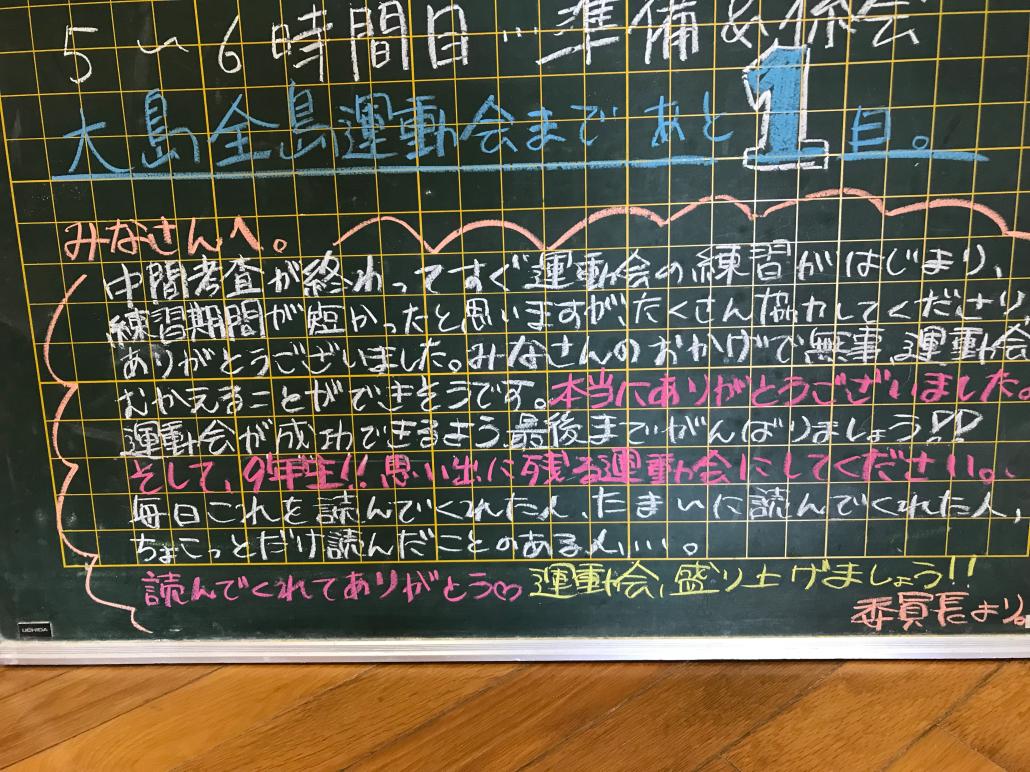 5〜6時間目…準備&係会
大島全島運動会まであと1日。
みなさんへ。
中間考査が終わってすぐ運動会の練習がはじまり、
練習期間が短かったと思いますが、たくさん協力してくださり、
ありがとうございました。みなさんのおかげで無事、運動会
むかえることができそうです。本当にありがとうございました。
運動会が成功できるよう最後までがんばりましょう!!
そして、9年生!!思い出に残る運動会にしてください。
毎日これを読んでくれた人、たまいに読んでくれた人,
ちょこっとだけ読んだことのある人…。
読んでくれてありがとう♡運動会、盛り上げましょう!!
委員長より。
UCHIDA